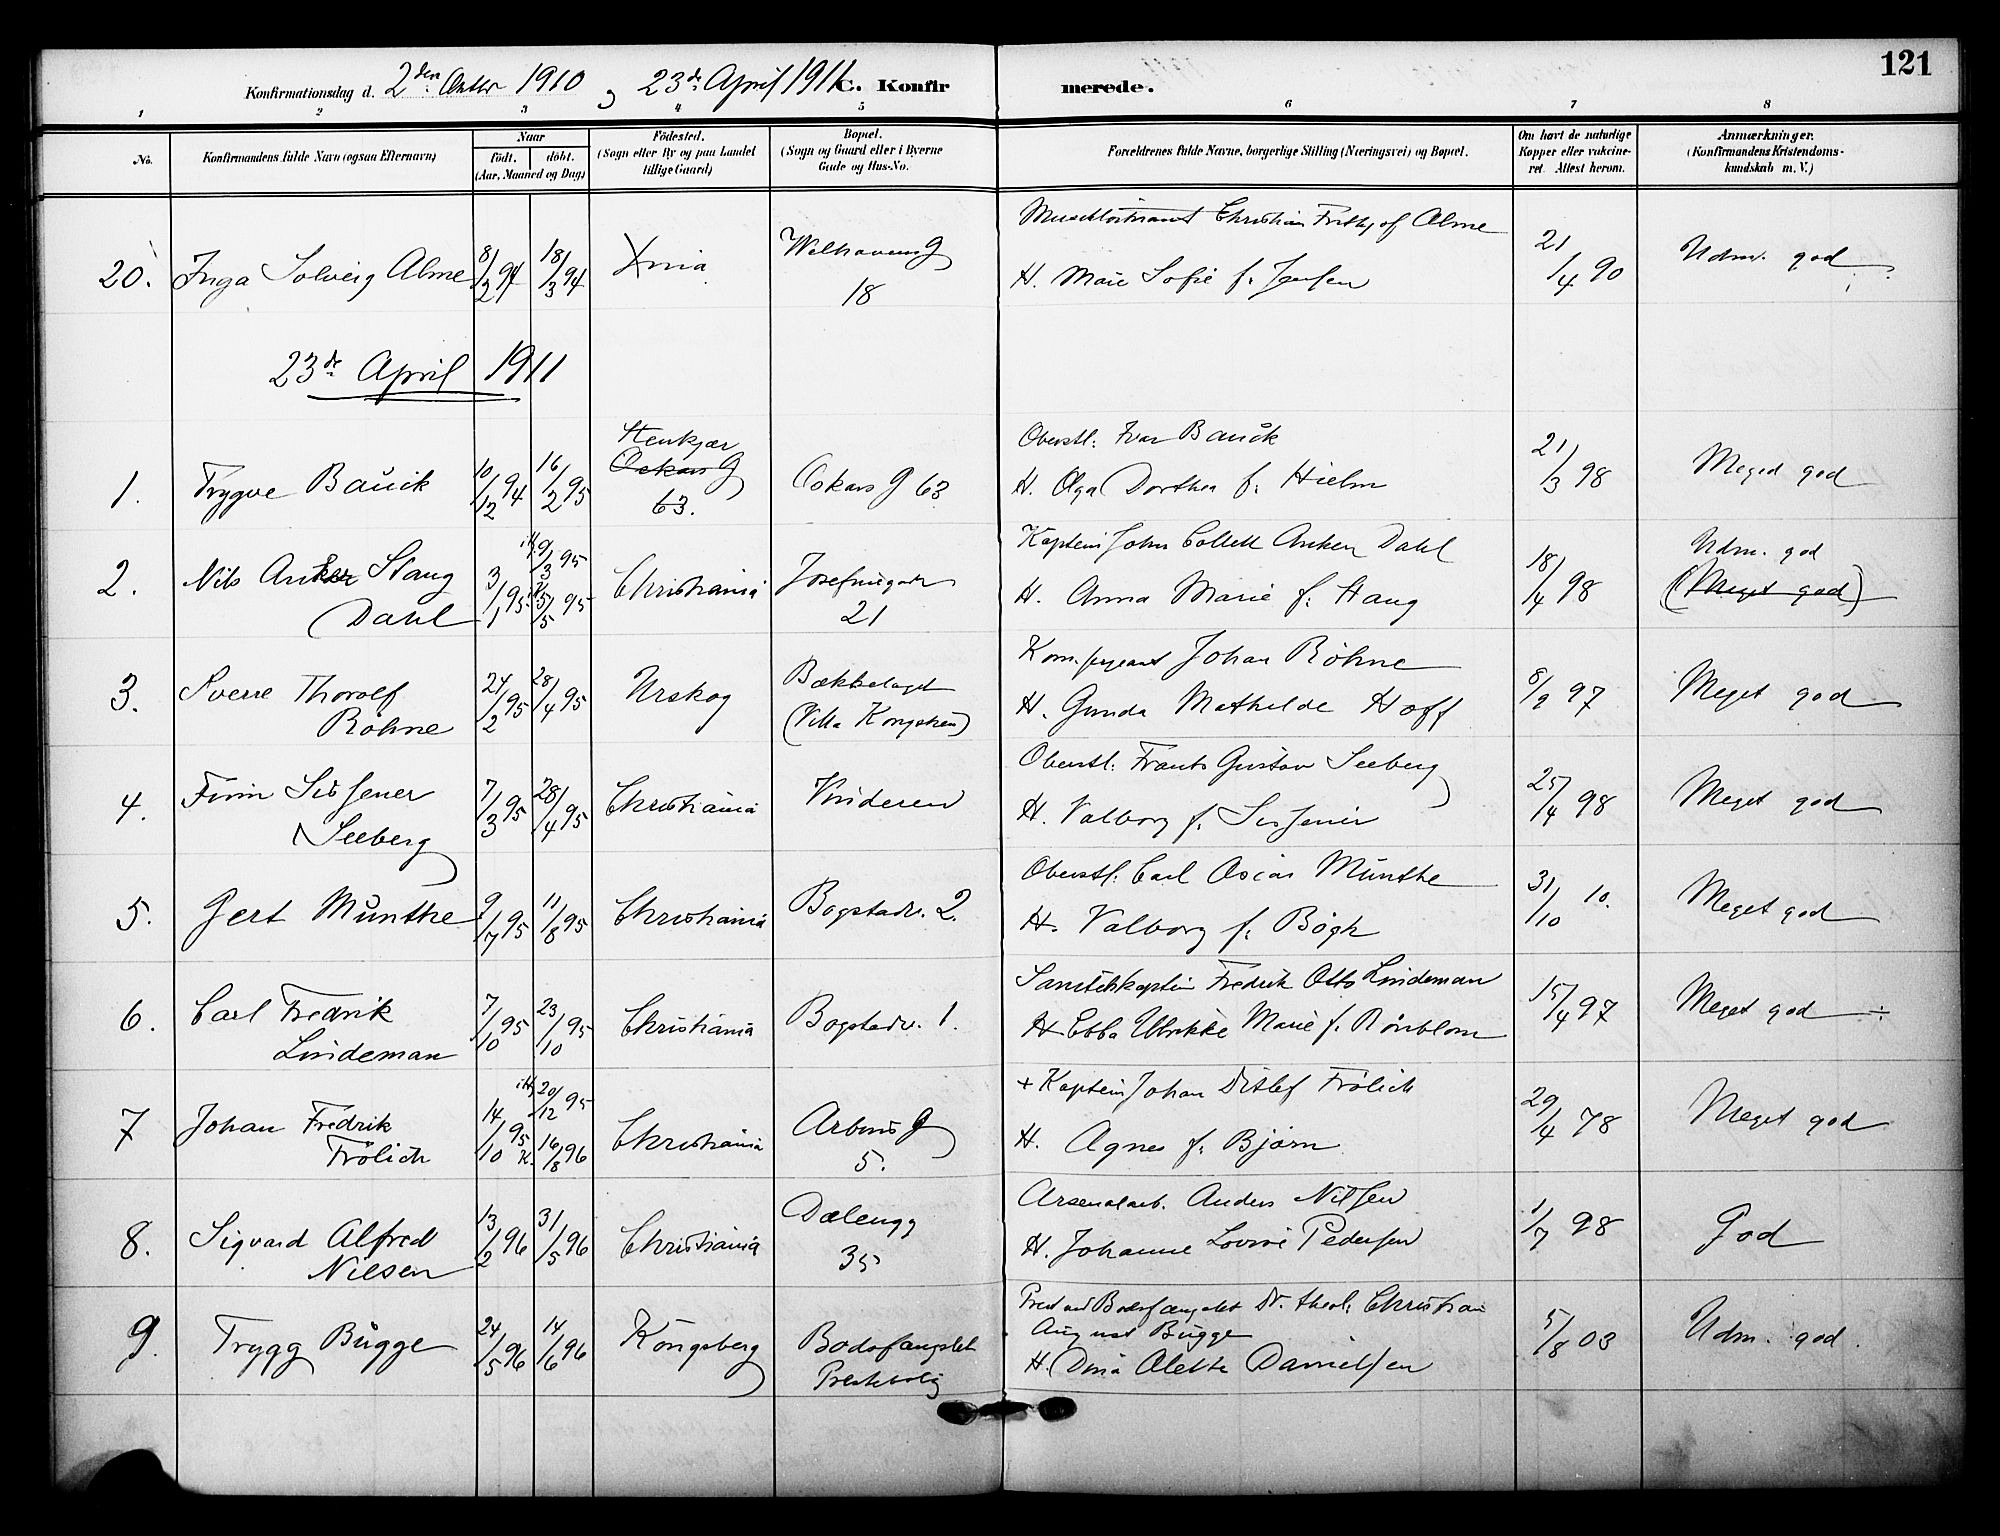 121
Konfirmationsdag d. 2den Oktbr 1910 og 23de April 1911 C. Konfirmerede.
1 2 3 4 5 6 7 8
No. Konfirmandens fulde Navn (ogsaa Efternavn) Naar født. døbt. (Aar, Maaned og Dag) Fødested. (Sogn eller By og paa Landet tillige Gaard) Bopæl. (Sogn og Gaard eller i Byerne Gade og Hus-No. Forældrenes fulde Navne, borgerlige Stilling (Næringsvei) og Bopæl. Om havt de naturlige Kopper eller vakcineret. Attest herom. Anmærkninger. (Konfirmandens Kristendomskundskab m. V.)
20. Inga Solveig Alme 8/2 94 18/3 94 Xnia Welhavens G 18
Christian Frithjof Alme
H. Marie Sofie f. Jensen 21/4 90 Udm. god
23de April 1911
1. Trygve Bauck 10/12 94 16/2 95 Stenkjær Oskars G 63. Oskars G 63
Oberstl. Ivar Bauck
H. Olga Dorthea f. Hielm 21/3 98 Meged god
2. Nils Anker Stang
Dahl 3/1 95 9/3 95 5/5 95 Christiania Josefinegade 21
Kaptein John Collett Anker Dahl
H. Anna Marie f. Stang 18/4 98 Udm. god
(Meget god)
3. Sverre Thorolf
Röhne 24/2 95 28/4 95 Urskog Bækkelaget
(Villa Kongshei)
Kom. sergeant Johan Röhne
H. Gunda Mathilde Hoff 8/9 97 Meget god
4. Finn Sissener
Seeberg 7/3 95 28/4 95 Christiania Vinderen
Oberstl. Frants Gustav Seeberg
H. Valborg f. Sissener 25/4 98 Meget god
5. Gert Munthe 9/7 95 11/8 95 Christiania Bogstadv. 2.
Oberstl. Carl Oscar Munthe
H. Valborg f. Bøgh 31/10 10. Meget god
6. Carl Fredrik
Lindeman 7/10 95 23/10 95 Christiania Bogstadv. 1.
Sanitetskaptein Fredrik Otto Lindeman
H. Ebba Ulrikke Marie f. Rönblom 15/4 97 Meget god ÷
7 Johan Fredrik
Frölich 14/10 95 20/12 95 K. 16/8 96 Christiania Arbins G
5.
+ Kaptein Johan Ditlef Frölich
H. Agnes f. Bjørn 29/4 78 Meget god
8. Sigvard Alfred
Nilsen 13/2 96 31/5 96 Christiania Dælengg
35
Arsenalarb. Anders Nilsen
H. Johanne Lovise Pedersen 1/7 98 God
9. Trygg Bugge 24/5 96 14/6 96 Kongsberg Bodsfængslet
Prestebolig
Prest ved Bodsfængslet Dr. theol. Christian
August Bugge
H. Dina Alette Danielsen 5/8 03 Udm. god.